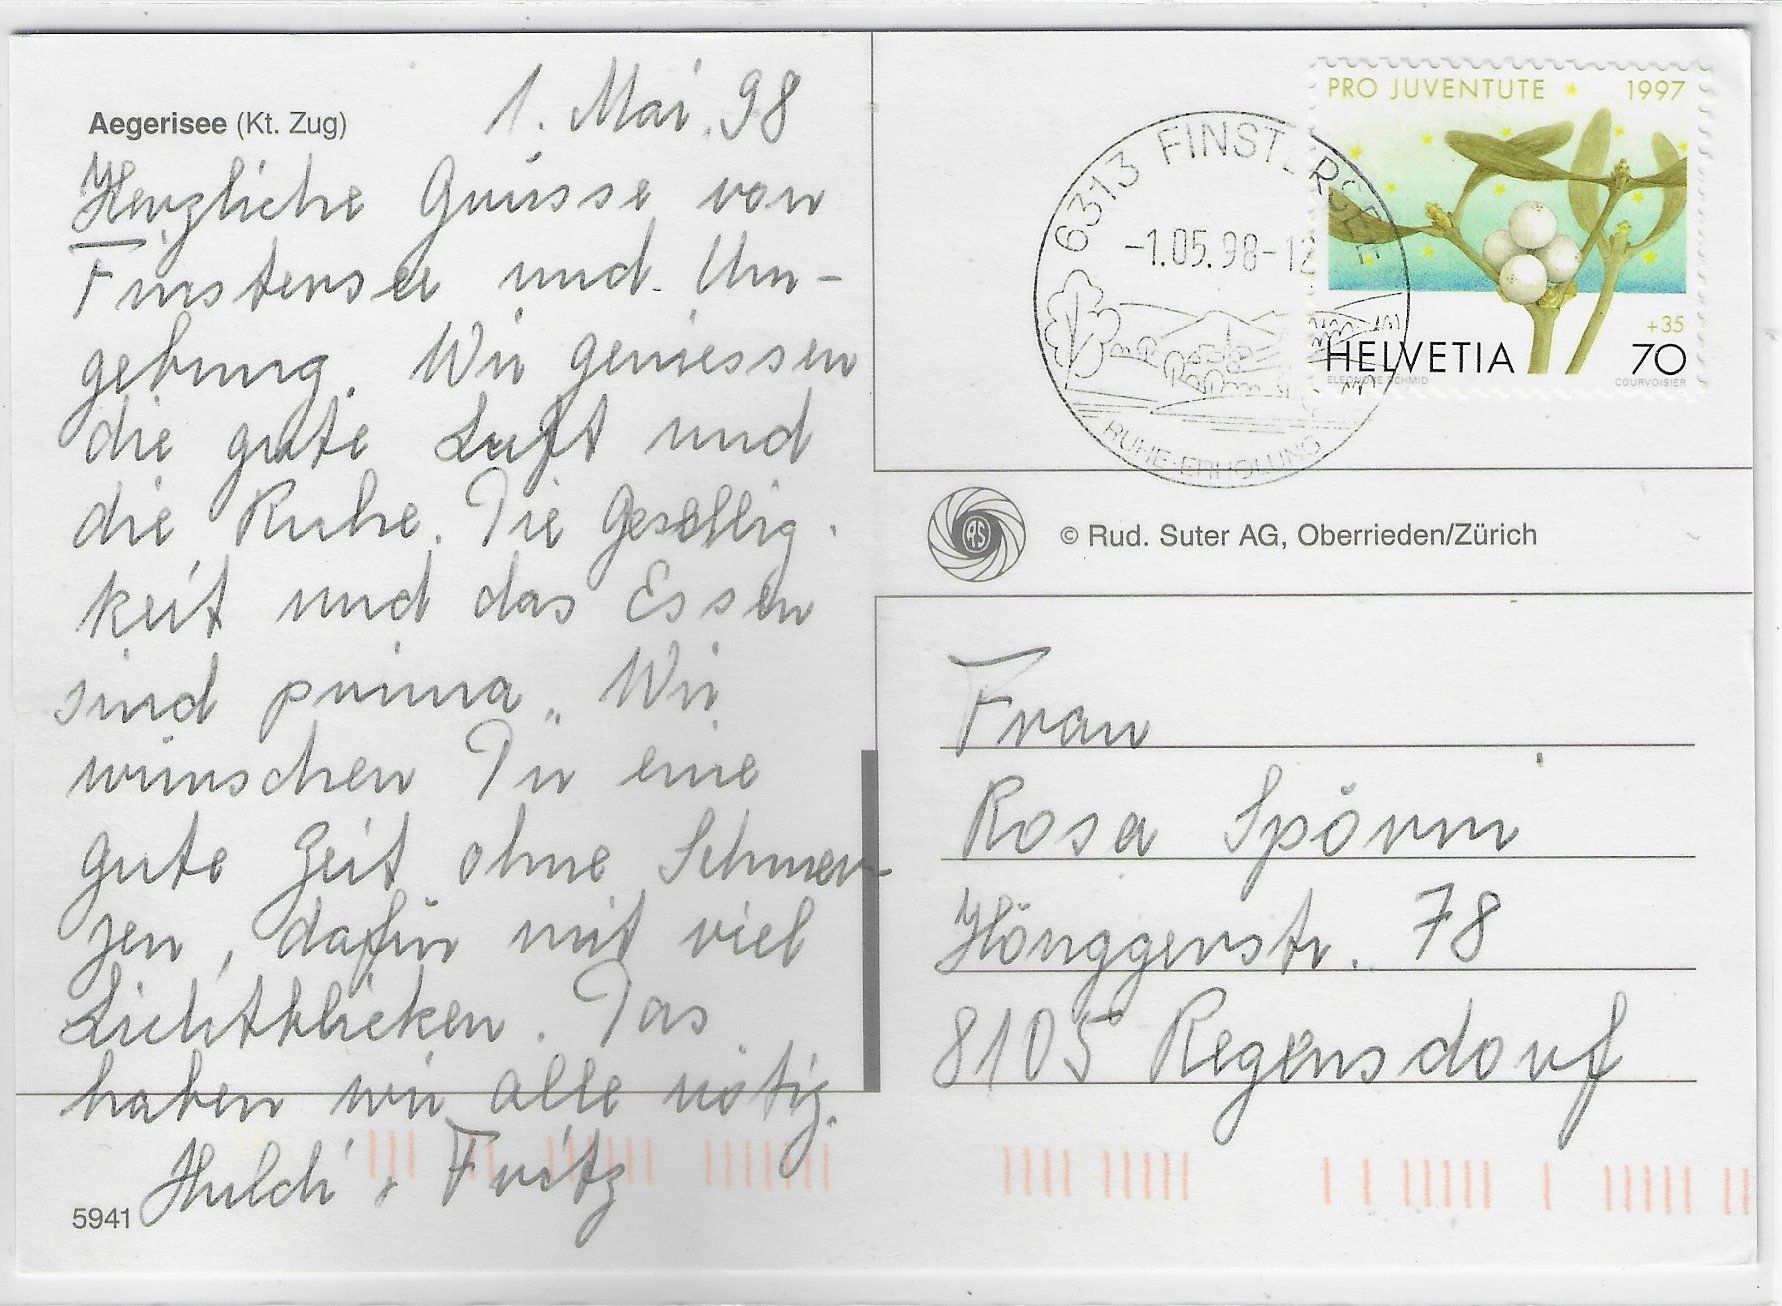 Aegerisee (Kt. Zug)
1. Mai. 98
Herzliche Grüsse von
Finstersee und Um-
gebung. Wir geniessen
die gute Luft und
die Ruhe. Die Gesellig-
keit und das Essen
sind prima. Wir
wünschen Dir eine
gute Zeit ohne Schmer-
zen, dafür mit viel
Lichtblicken. Das
haben wir alle nötig.
Huldi + Fritz
5941
6313 FINSTERSEE
-1.05.98-12
RUHE·ERHOLUNG
PRO JUVENTUTE 1997
+35
HELVETIA 70
ELEONORE SCHMID COURVOISIER
RS © Rud. Suter AG, Oberrieden/Zürich
Frau
Rosa Spörri
Hönggerstr. 78
8105 Regensdorf